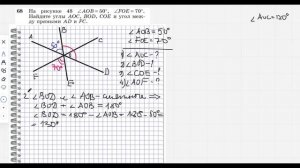 68 На рисунке 48 ∠AOB = 50°, ∠FOE = 70°.
Найдите углы AOC, BOD, COE и угол меж-
ду прямыми AD и FC.
B
A
C
50°
O
70°
F
D
E
∠AOB = 50°
∠FOE = 70°
1) ∠AOC - ?
2) ∠BOD - ?
3) ∠COE - ?
4) ∠AOF - ?
∠AOC = 120°
2) ∠BOD и ∠AOB - смежные ⇒
⇒ ∠BOD + ∠AOB = 180°
∠BOD = 180° - ∠AOB =
= 130°